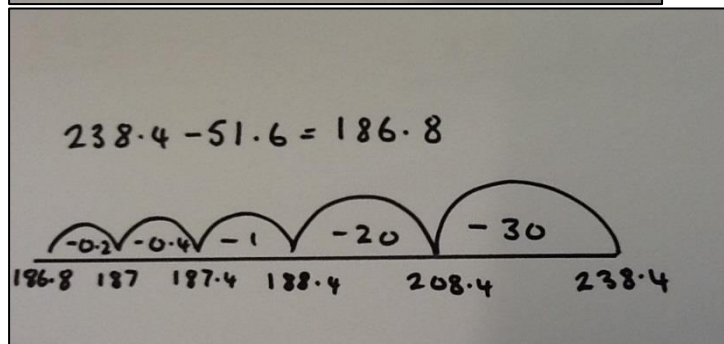 238.4 - 51.6 = 186.8
-0.2 -0.4 -1 -20 -30
186.8 187 187.4 188.4 208.4 238.4